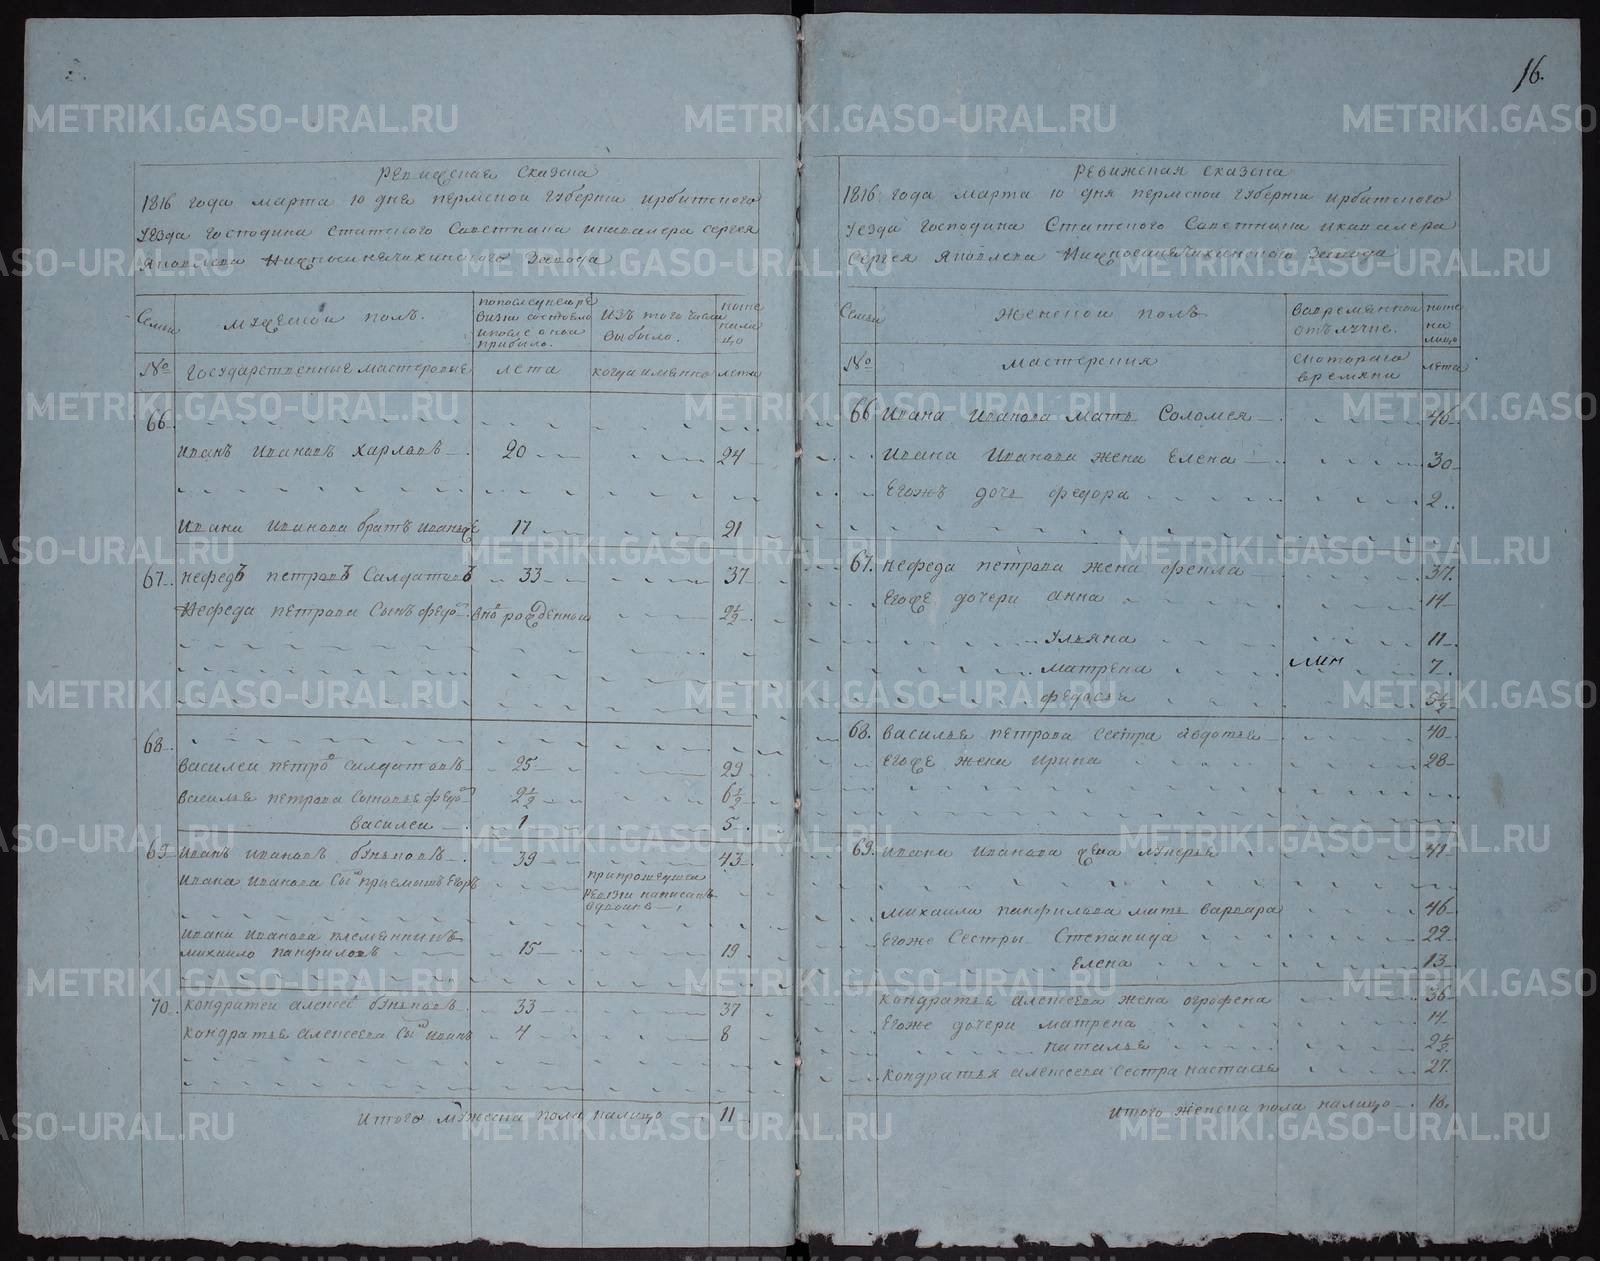 16.
Ревижская сказка
1816 года марта 10 дня пермской губерни ирбитского
уезда господина статского Советника икавалера сергея
яковлева Нижносинячихинского Завода
Семьи
мужеской полъ.
попоследнеи ре
визи состояло
ипосле оной
прибыло.
изъ того числа
выбыло.
ныне
нали
цо
№
государственные мастеровые
лета
когда именно
лета
66
иванъ ивановъ харловъ 20 24
ивана иванова братъ иванже 17 21
67. нефедъ петровъ Салдатовъ 33 37
Нефеда петрова Сынъ федоръ вновь рожденной 2½
68
василеи петровъ салдатовъ 25 29
василья петрова сыновья федоръ 2½ 6½
василеи 1 5
69 иванъ ивановъ буньковъ 39 43
ивана иванова сынъ приемышъ Егоръ
припрошедшеи
ревизи написанъ
вдвоине
ивана иванова племянникъ
михаило панфиловъ 15 19
70. кондратеи алексеевъ буньковъ 33 37
кондратья алексеева сынъ иванъ 4 8
итого мужеска пола налицо 11
Ревижская сказка
1816 года марта 10 дня пермской губерни ирбитского
уезда господина Статского Советника икавалера
Сергея яковлева Нижносинячихинского Завода
Семьи
женской полъ
вовременной
отълучке.
ныне
на
лицо
№
мастерския
скоторого
времяни
лета
66 ивана иванова мать Соломея 46
ивана иванова жена Елена 30
Егожъ дочь федора 2
67. нефеда петрова жена фекла 37.
Егоже дочери анна 14
ульяна 11
матрена 7
федосья 5½
68. василья петрова сестра авдотья 40
Егоже жена ирина 28
69. ивана иванова жена лукерья 41
михаила панфилова мать варвара 46
Егоже Сестры Степанида 22
Елена 13
кондратья алексеева жена огрофена 36
Егоже дочери матрена 14
наталья 2½
кондратья алексеева сестра настасья 27
итого женска пола налицо 18.
METRIKI.GASO-URAL.RU